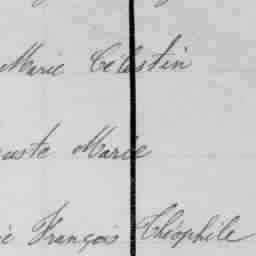 Marie Célestin
Marie
François Théophile